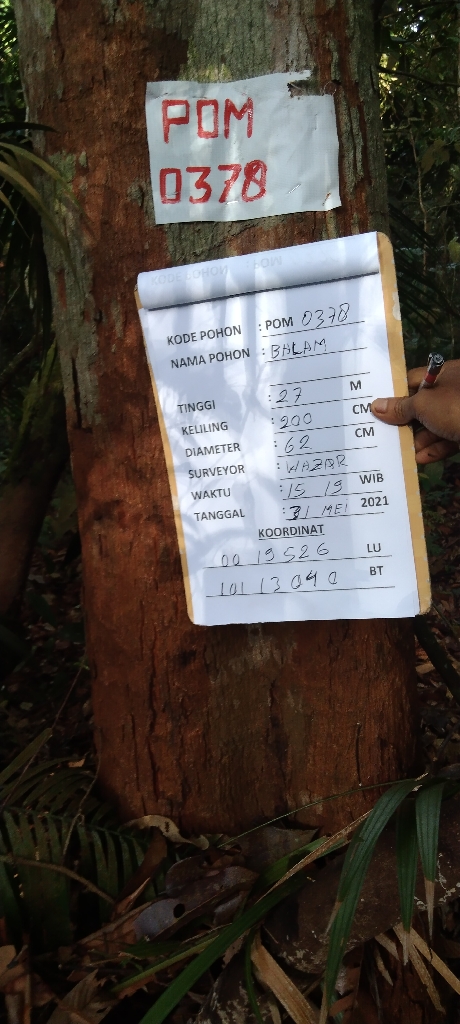 POM
0378
KODE POHON : POM 0378
NAMA POHON : BALAM
TINGGI : 27 M
KELILING : 200 CM
DIAMETER : 62 CM
SURVEYOR : WAZAR
WAKTU : 15 19 WIB
TANGGAL : 31 MEI 2021
KOORDINAT
00 19 526 LU
101 13 040 BT